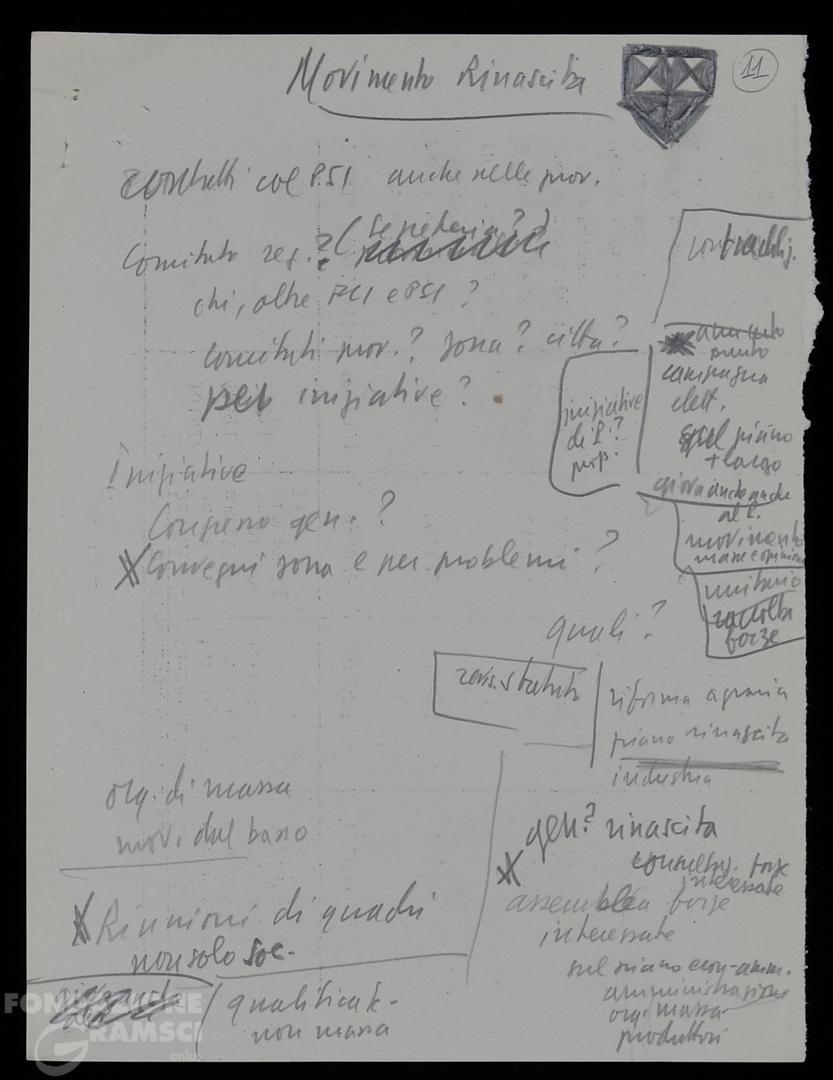 Movimento Rinascita
11
contatti col PSI anche nelle prov.
Comitato reg.? (Segreteria?)
chi, oltre PCI e PSI?
comitati prov.? zona? città?
per iniziative?
iniziative
di P.?
prop.
punto
campagna
elett.
sul piano
+ largo
giova anche anche
al P.
movimento
masse e opinione
unitario
raccolta
forze
Iniziative
Congresso gen.?
Convegni zona e per problemi?
quali?
riforma agraria
piano rinascita
industria
org. di massa
mov. dal basso
gen? rinascita
forze
interessate
assemblea forze
interessate
sul piano econ-amm.
amministrazione
org. massa
produttori
Riunioni di quadri
non solo soc.
qualificate-
non massa
FONDAZIONE
GRAMSCI
onlus